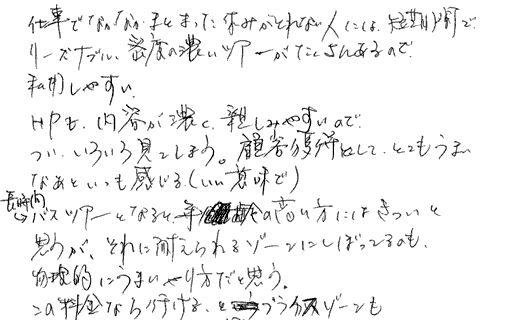 仕事でなかなかまとまった休みがとれない人には、短期間で
リーズナブル、密度の濃いツアーがたくさんあるので
利用しやすい。
HPも、内容が濃く、親しみやすいので
つい、いろいろ見てしまう。顧客獲得として、とてもうまい
なあといつも感じる(いい意味で)
長時間
バスツアーとなると、年齢の高い方にはきついと
思うが、それに耐えられるゾーンにしぼってるのも、
物理的にうまいやり方だと思う。
この料金なら行ける、と プラスゾーンも